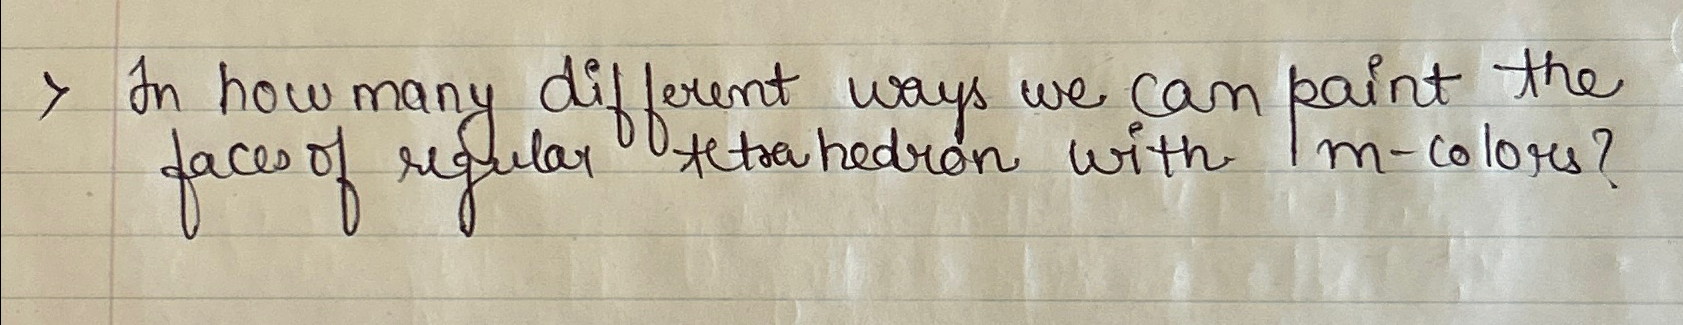 > In how many different ways we can paint the
faces of regular tetrahedron with m-colors?